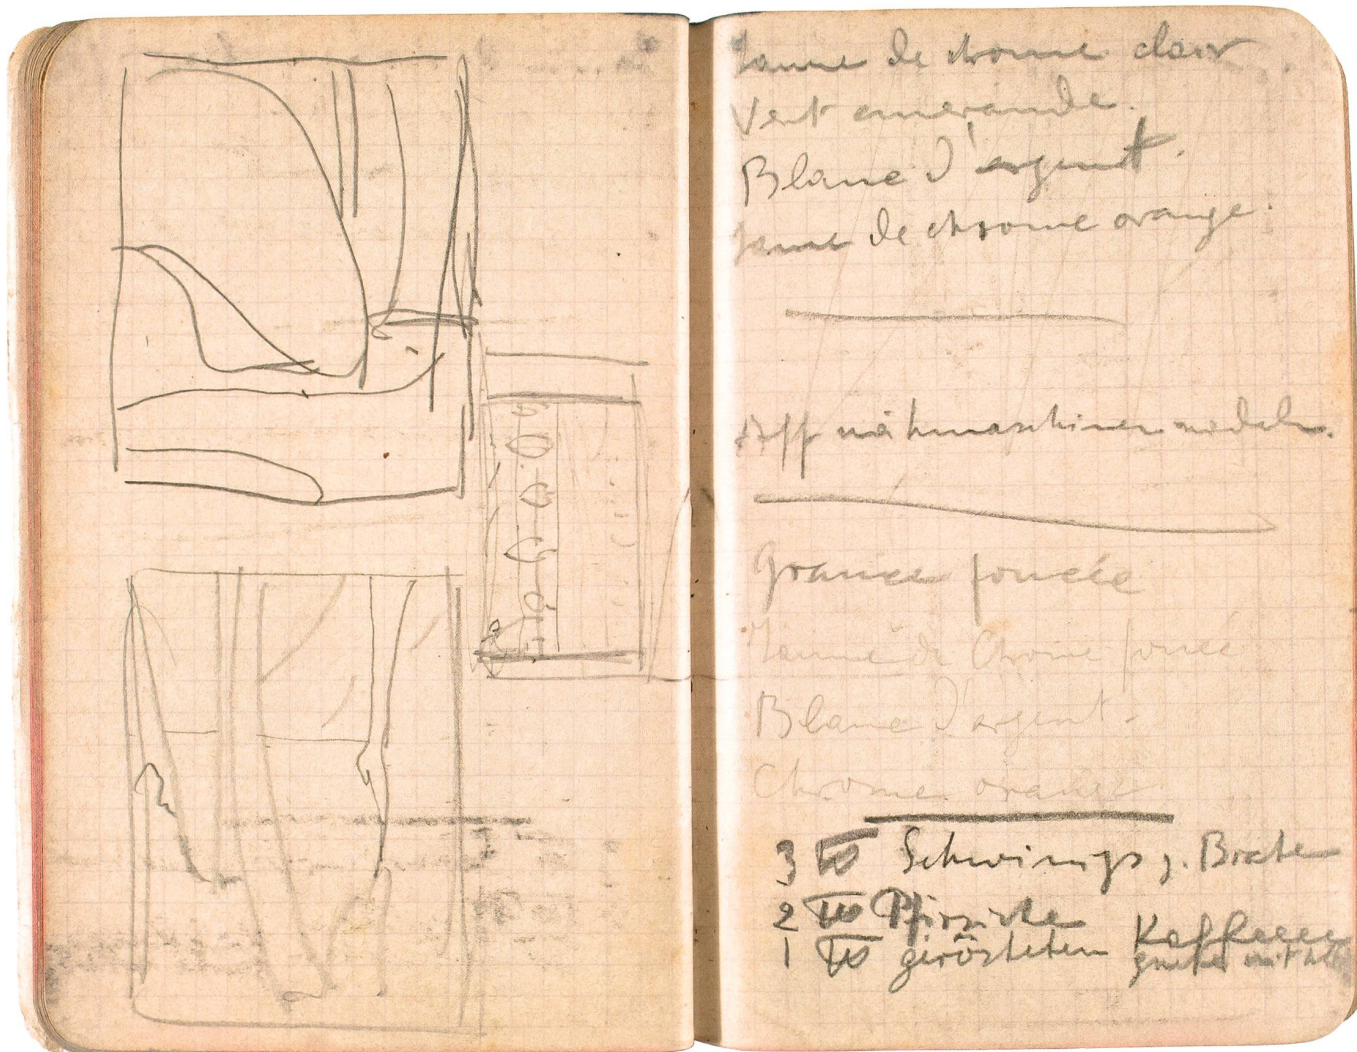 Jaune de chrome clair.
Vert emeraude.
Blanc d'argent.
Jaune de chrome orange.
Aff nähmaschinennadeln.
Grance foncée
Jaune de Chrome foncée
Blanc d'argent.
Chrome orange
3 ℔ Schweins z. Braten
2 ℔ Pfirsiche
1 ℔ gerösteten Kaffeee